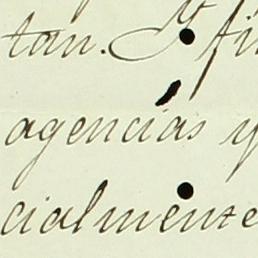 tan.
agencias y
cialmente